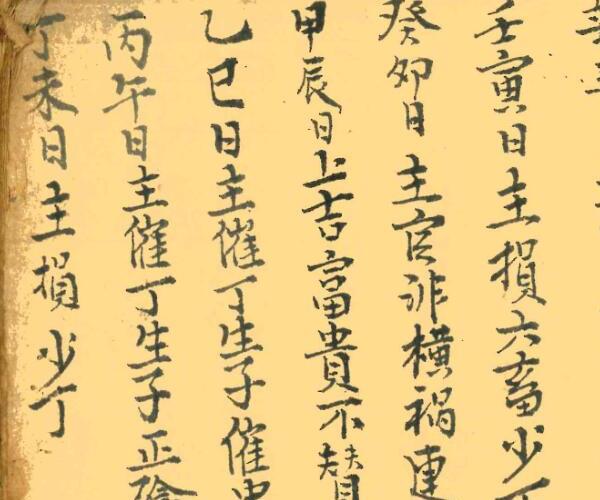 壬寅日主損六畜少丁
癸卯日主官非橫禍連
甲辰日上吉富貴不賛
乙巳日主催丁生子催
丙午日主催丁生子正
丁未日主損少丁